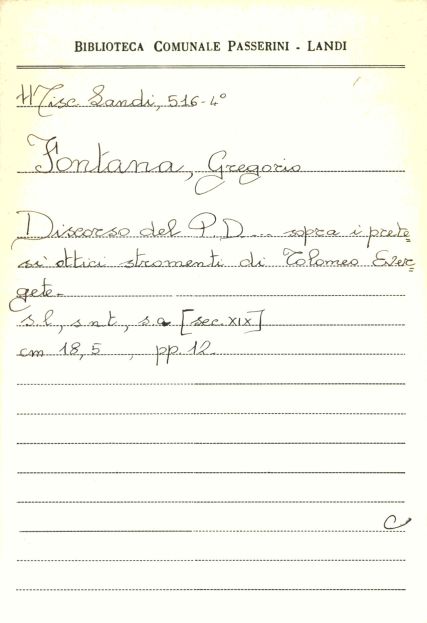 BIBLIOTECA COMUNALE PASSERINI - LANDI
Misc. Landi, 516-4°
Fontana, Gregorio
Discorso del P. D.... sopra i prete=
si ottici stromenti di Tolomeo Ever=
gete.
s.l., s.n.t., s.a. [sec. XIX]
cm 18,5 , pp. 12.
C